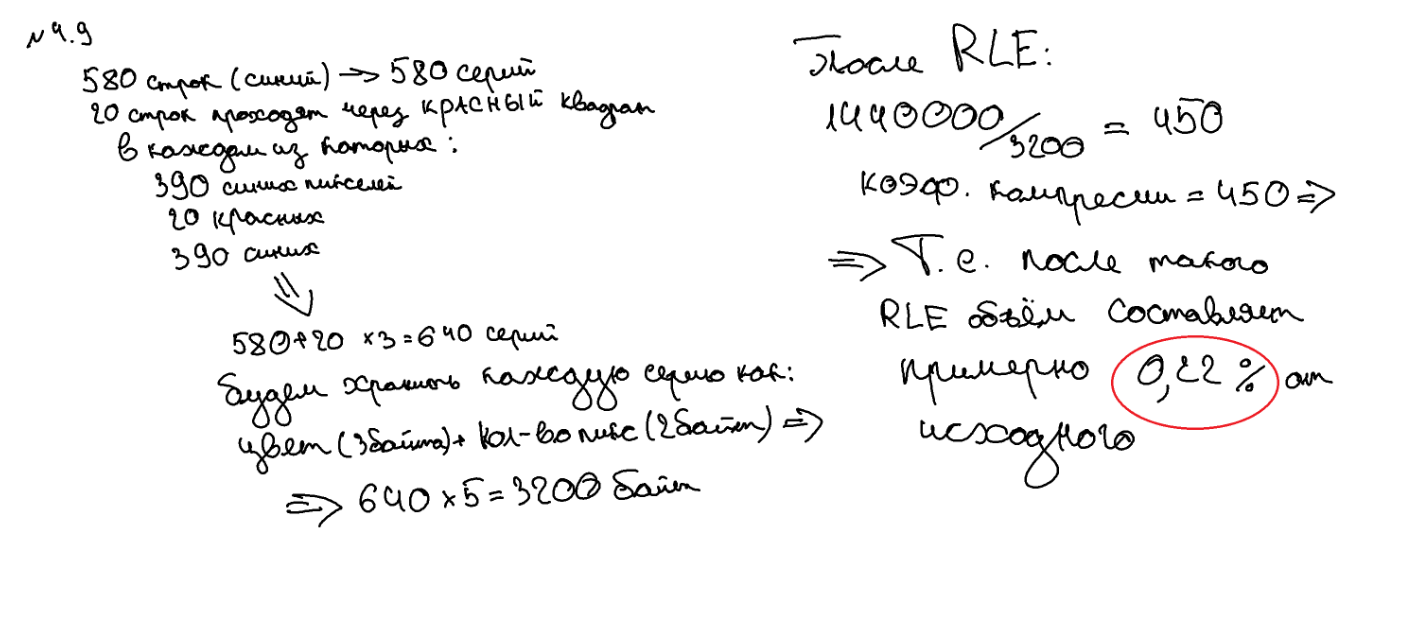 №4.9
580 строк (синий) → 580 серий
20 строк проходят через КРАСНЫЙ квадрат
в каждом из которых:
390 синих пикселей
20 красных
390 синих
⇓
580+20 ×3=640 серий
будем хранить каждую серию как:
цвет (3байта)+ кол-во пикс (2байт) ⇒
⇒ 640×5=3200 байт
После RLE:
1440000/3200 = 450
коэф. компрессии = 450 ⇒
⇒ Т.е. после такого
RLE объём составляет
примерно 0,22% от
исходного